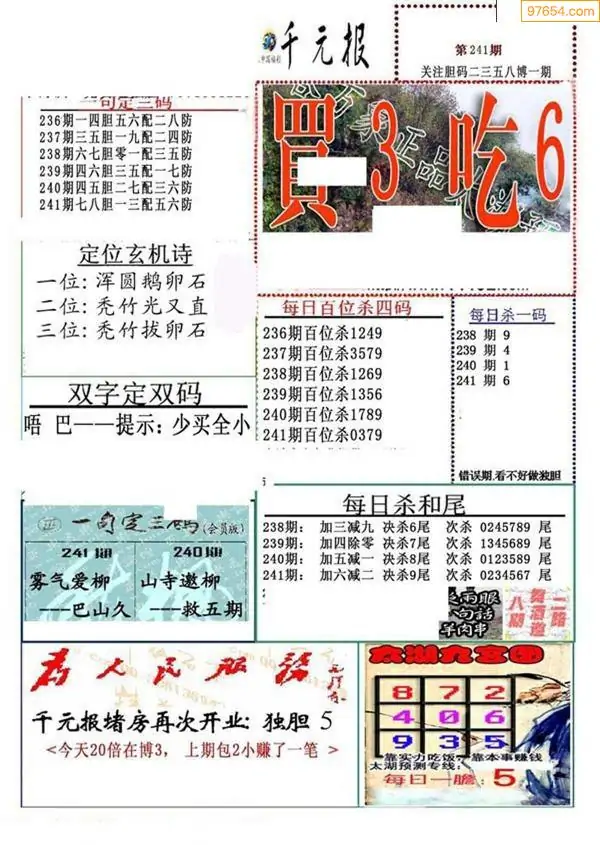 97654.com
千元报
第241期
关注胆码二三五八博一期
一句定三码
236期一四胆五六配二八防
237期三五胆一九配二四防
238期六七胆零一配三五防
239期四六胆三五配一七防
240期四五胆二七配三六防
241期七八胆一三配五六防
買 3 吃 6
定位玄机诗
一位: 浑圆鹅卵石
二位: 秃竹光又直
三位: 秃竹拔卵石
每日百位杀四码
236期百位杀1249
237期百位杀3579
238期百位杀1269
239期百位杀1356
240期百位杀1789
241期百位杀0379
每日杀一码
238 期 9
239 期 4
240 期 1
241 期 6
错误期,看不好做独胆
双字定双码
唔 巴——提示: 少买全小
一句定三码(会员版)
241期
雾气爱柳
---巴山久
240期
山寺邀柳
---救五期
每日杀和尾
238期: 加三减九 决杀6尾 次杀 0245789 尾
239期: 加四除零 决杀7尾 次杀 1345689 尾
240期: 加五减一 决杀8尾 次杀 0123589 尾
241期: 加六减二 决杀9尾 次杀 0234567 尾
为人民服务
千元报堵房再次开业: 独胆 5
<今天20倍在博3, 上期包2小赚了一笔 >
太湖九宫图
8 7 2
4 0 6
9 3 5
靠实力吃饭, 靠本事赚钱
太湖预测专线:
每日一胆: 5